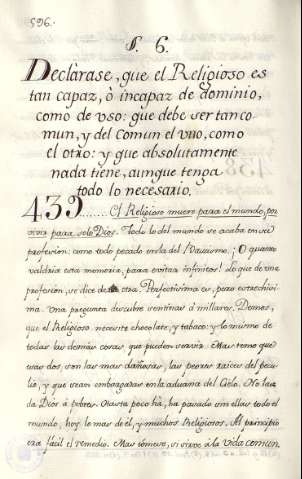 596.
§. 6.
Declàrase, que el Religioso es
tan capaz, ò incapaz de dominio,
como de uso: que debe ser tan co-
mun, y del comun el uno, como
el otro: y que absolutamente
nada tiene, aunque tenga
todo lo necesario.
439....... El Religioso muere para el mundo, por
vivir para solo Dios. Todo lo del mundo se acaba en su
profesion: como todo pecado en la del Bautismo. ¡O quanto
valdria esta memoria, para evitar infinitos! Lo que de una
profesion, se dice de otra. Perfectisima es, pero estrechisi-
ma. Una pregunta descubre veninas à millares. Demos,
que el Religioso necesite chocolate, y tabaco: y lo mismo de
todas las demàs cosas que pueden servir. Mas temo que
esas dos son las mas dañosas, las peores raices del pecu-
lio, y que sean embargadas en la aduana del Cielo. No las
da Dios à pobres. Hasta poco hà, ha pasado sin ellas todo el
mundo, hoy lo mas de èl, y muchos Religiosos. Al principio
era fácil el remedio. Mas tomese, si sirve à la vida comun,